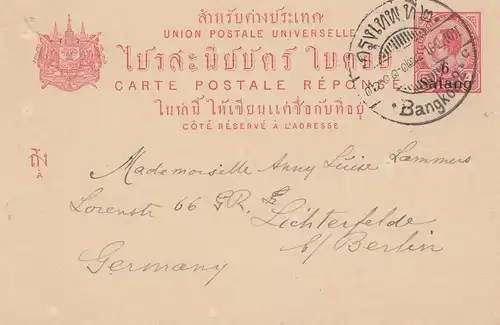 สำหรับต่างประเทศ
UNION POSTALE UNIVERSELLE
ไปรสะนียบัตร์ ใบตอบ
CARTE POSTALE RÉPONSE
ในหน้านี้ ให้เขียนแต่ชื่อกับที่อยู่
CÔTÉ RÉSERVÉ À L'ADRESSE
Bangkok
6
ถึง
A
Mademoiselle Anny Luise Lammers
Lorenstr 66 G.R. Lichterfelde
b/ Berlin
Germany